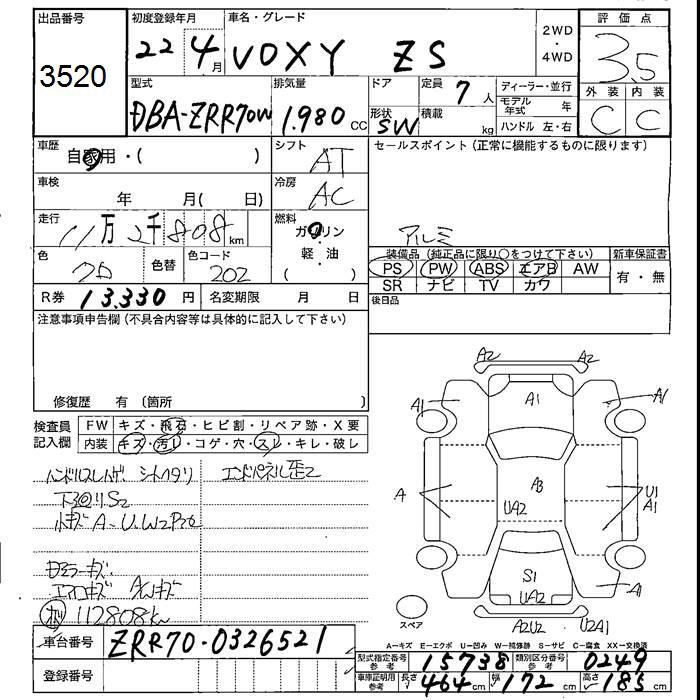 出品番号 初度登録年月 車名・グレード 2WD・4WD 評価点
3520 22 4月 VOXY ZS 3.5
型式 排気量 ドア 定員 7人 ディーラー・並行 外装 内装
モデル年式 年
DBA-ZRR70W 1.980 CC 形状 SW 積載 kg ハンドル 左・右 C C
車歴 自家用・( ) シフト AT セールスポイント (正常に機能するものに限ります)
車検 年 月( 日) 冷房 AC
走行 11万2千808km 燃料 ガソリン 軽・油 ( ) アルミ
装備品 (純正品に限り○をつけて下さい) 新車保証書
色 クロ 色替 色コード 202
PS PW ABS エアB AW 有・無
SR ナビ TV カワ
R券 13,330円 名変期限 月 日 後日品
注意事項申告欄 (不具合内容等は具体的に記入して下さい)
修復歴 有 〔箇所 〕
検査員記入欄 FW キズ・飛石・ヒビ割・リペア跡・X要
内装 キズ・汚レ・コゲ・穴・スレ・キレ・破レ
ハンドルスレハゲ シートヘタリ エンドパネル歪2
下廻リS2
小キズA-U.W2
ドアミラーキズ
エアロキズ
112808km
A2 A2
A1 A1 A1
A A3 U1
UA2 A1
S1
UA2 A1
スペア A2U2 U2A1
A-キズ E-エクボ U-凹み W-補修跡 S-サビ C-腐食 XX-交換済
車台番号 ZRR70-0326521
型式指定番号参考 15738 類別区分番号参考 0249
登録番号
車庫証明用参考 長さ 464cm 幅 172cm 高さ 185cm